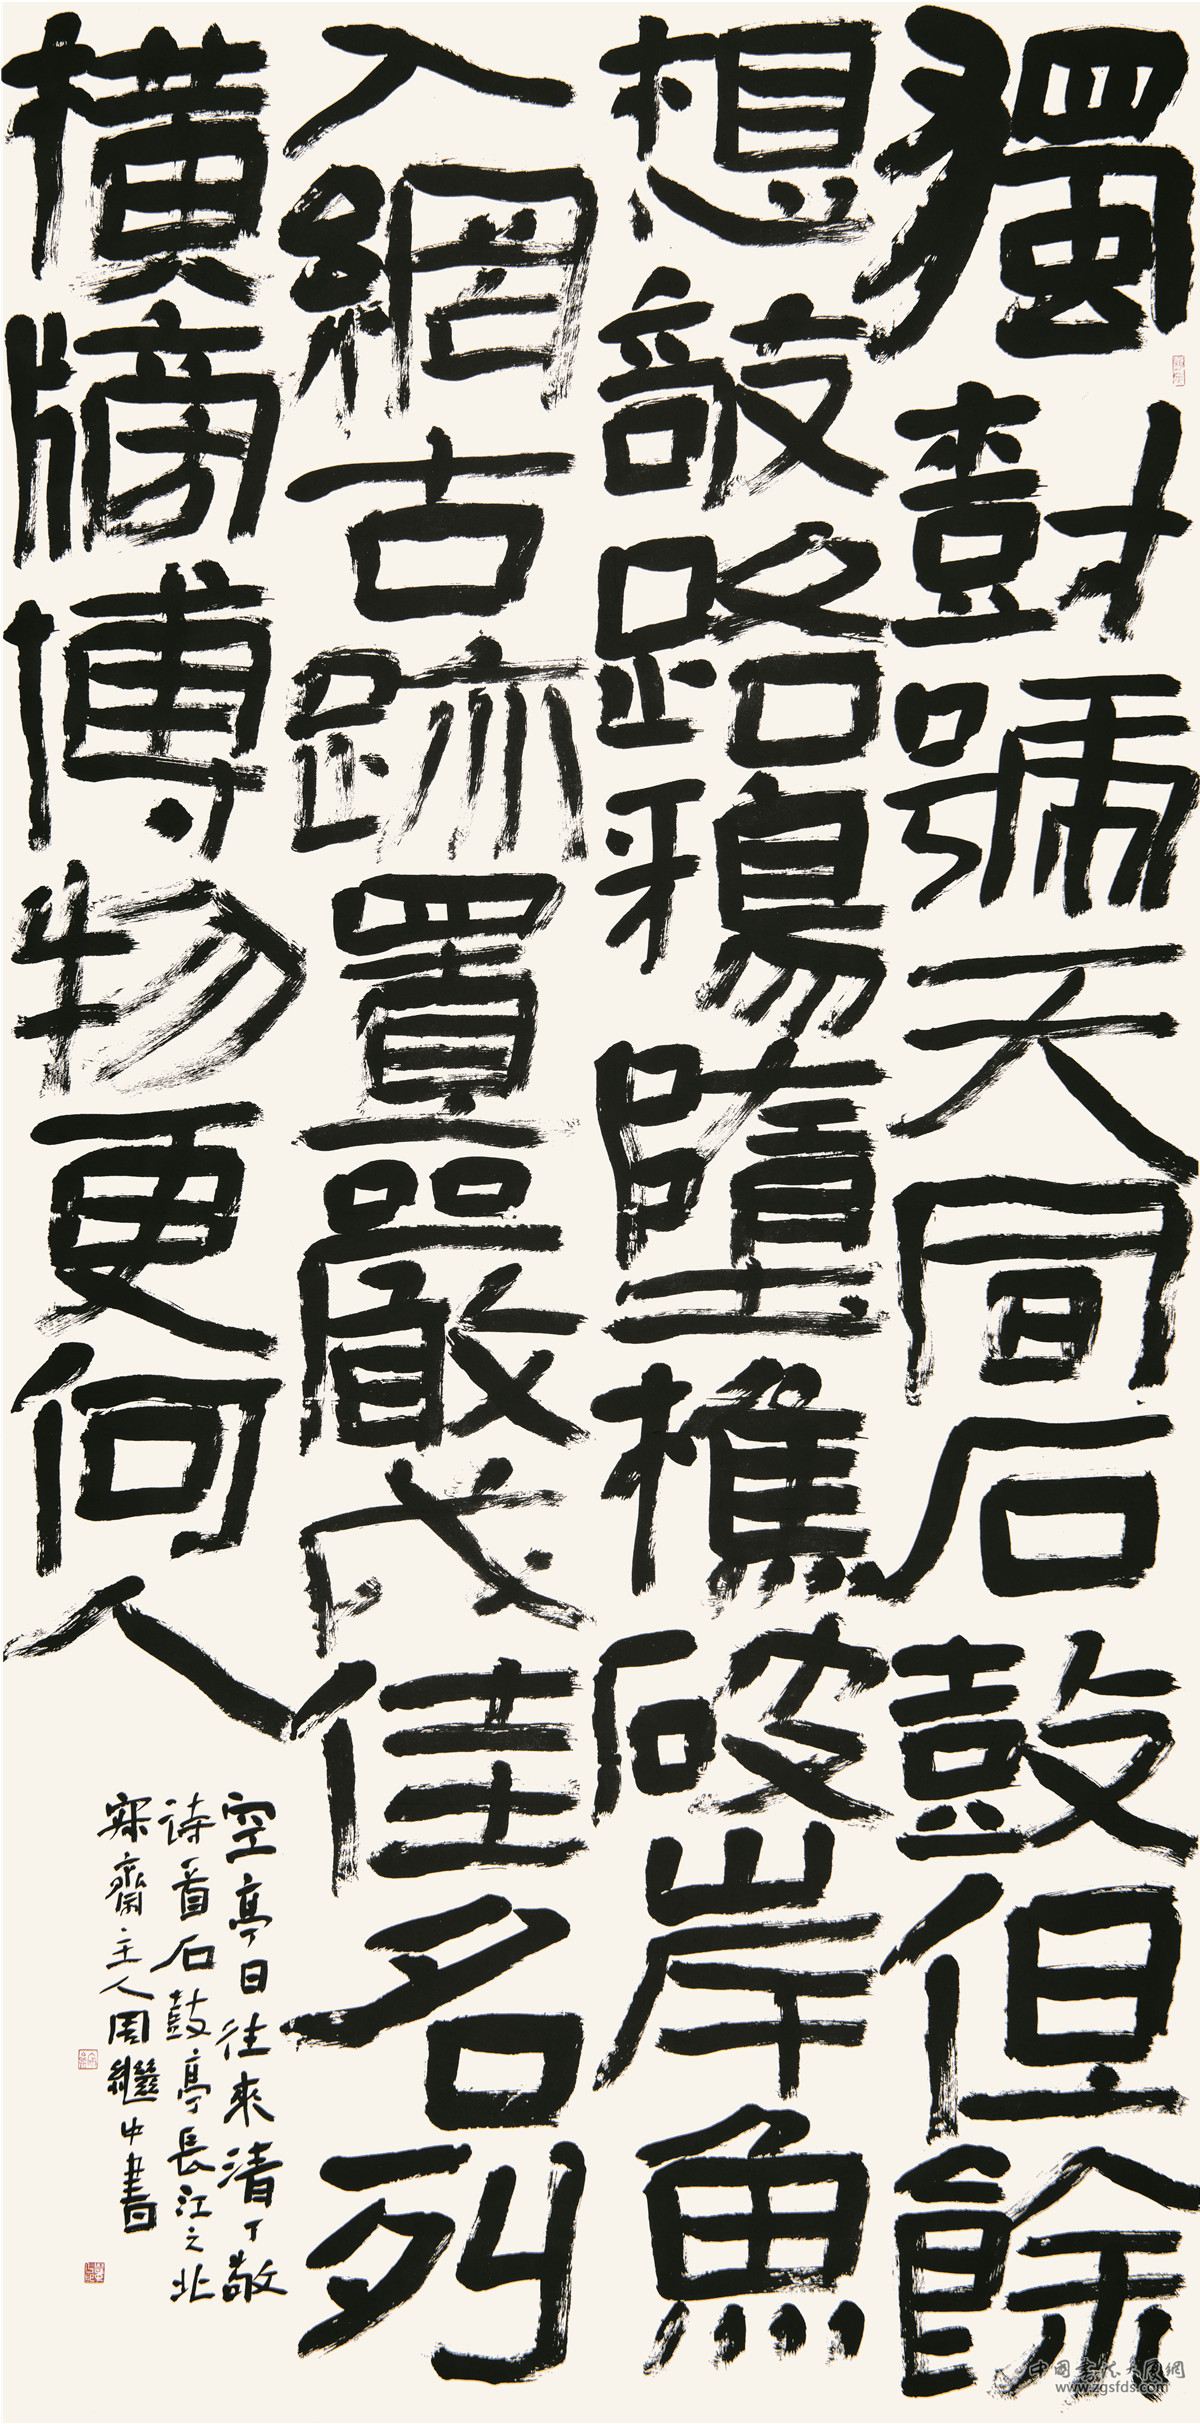 獨樹號天同石鼓但餘
想敲路鴉墮樵破岸魚
入網古跡置嚴戍佳名列
橫牓博物更何人
空亭日往來清丁敬
诗首石鼓亭長江之北
寐齋主人周繼中書
中國書法大厦網
www.zgsfds.com